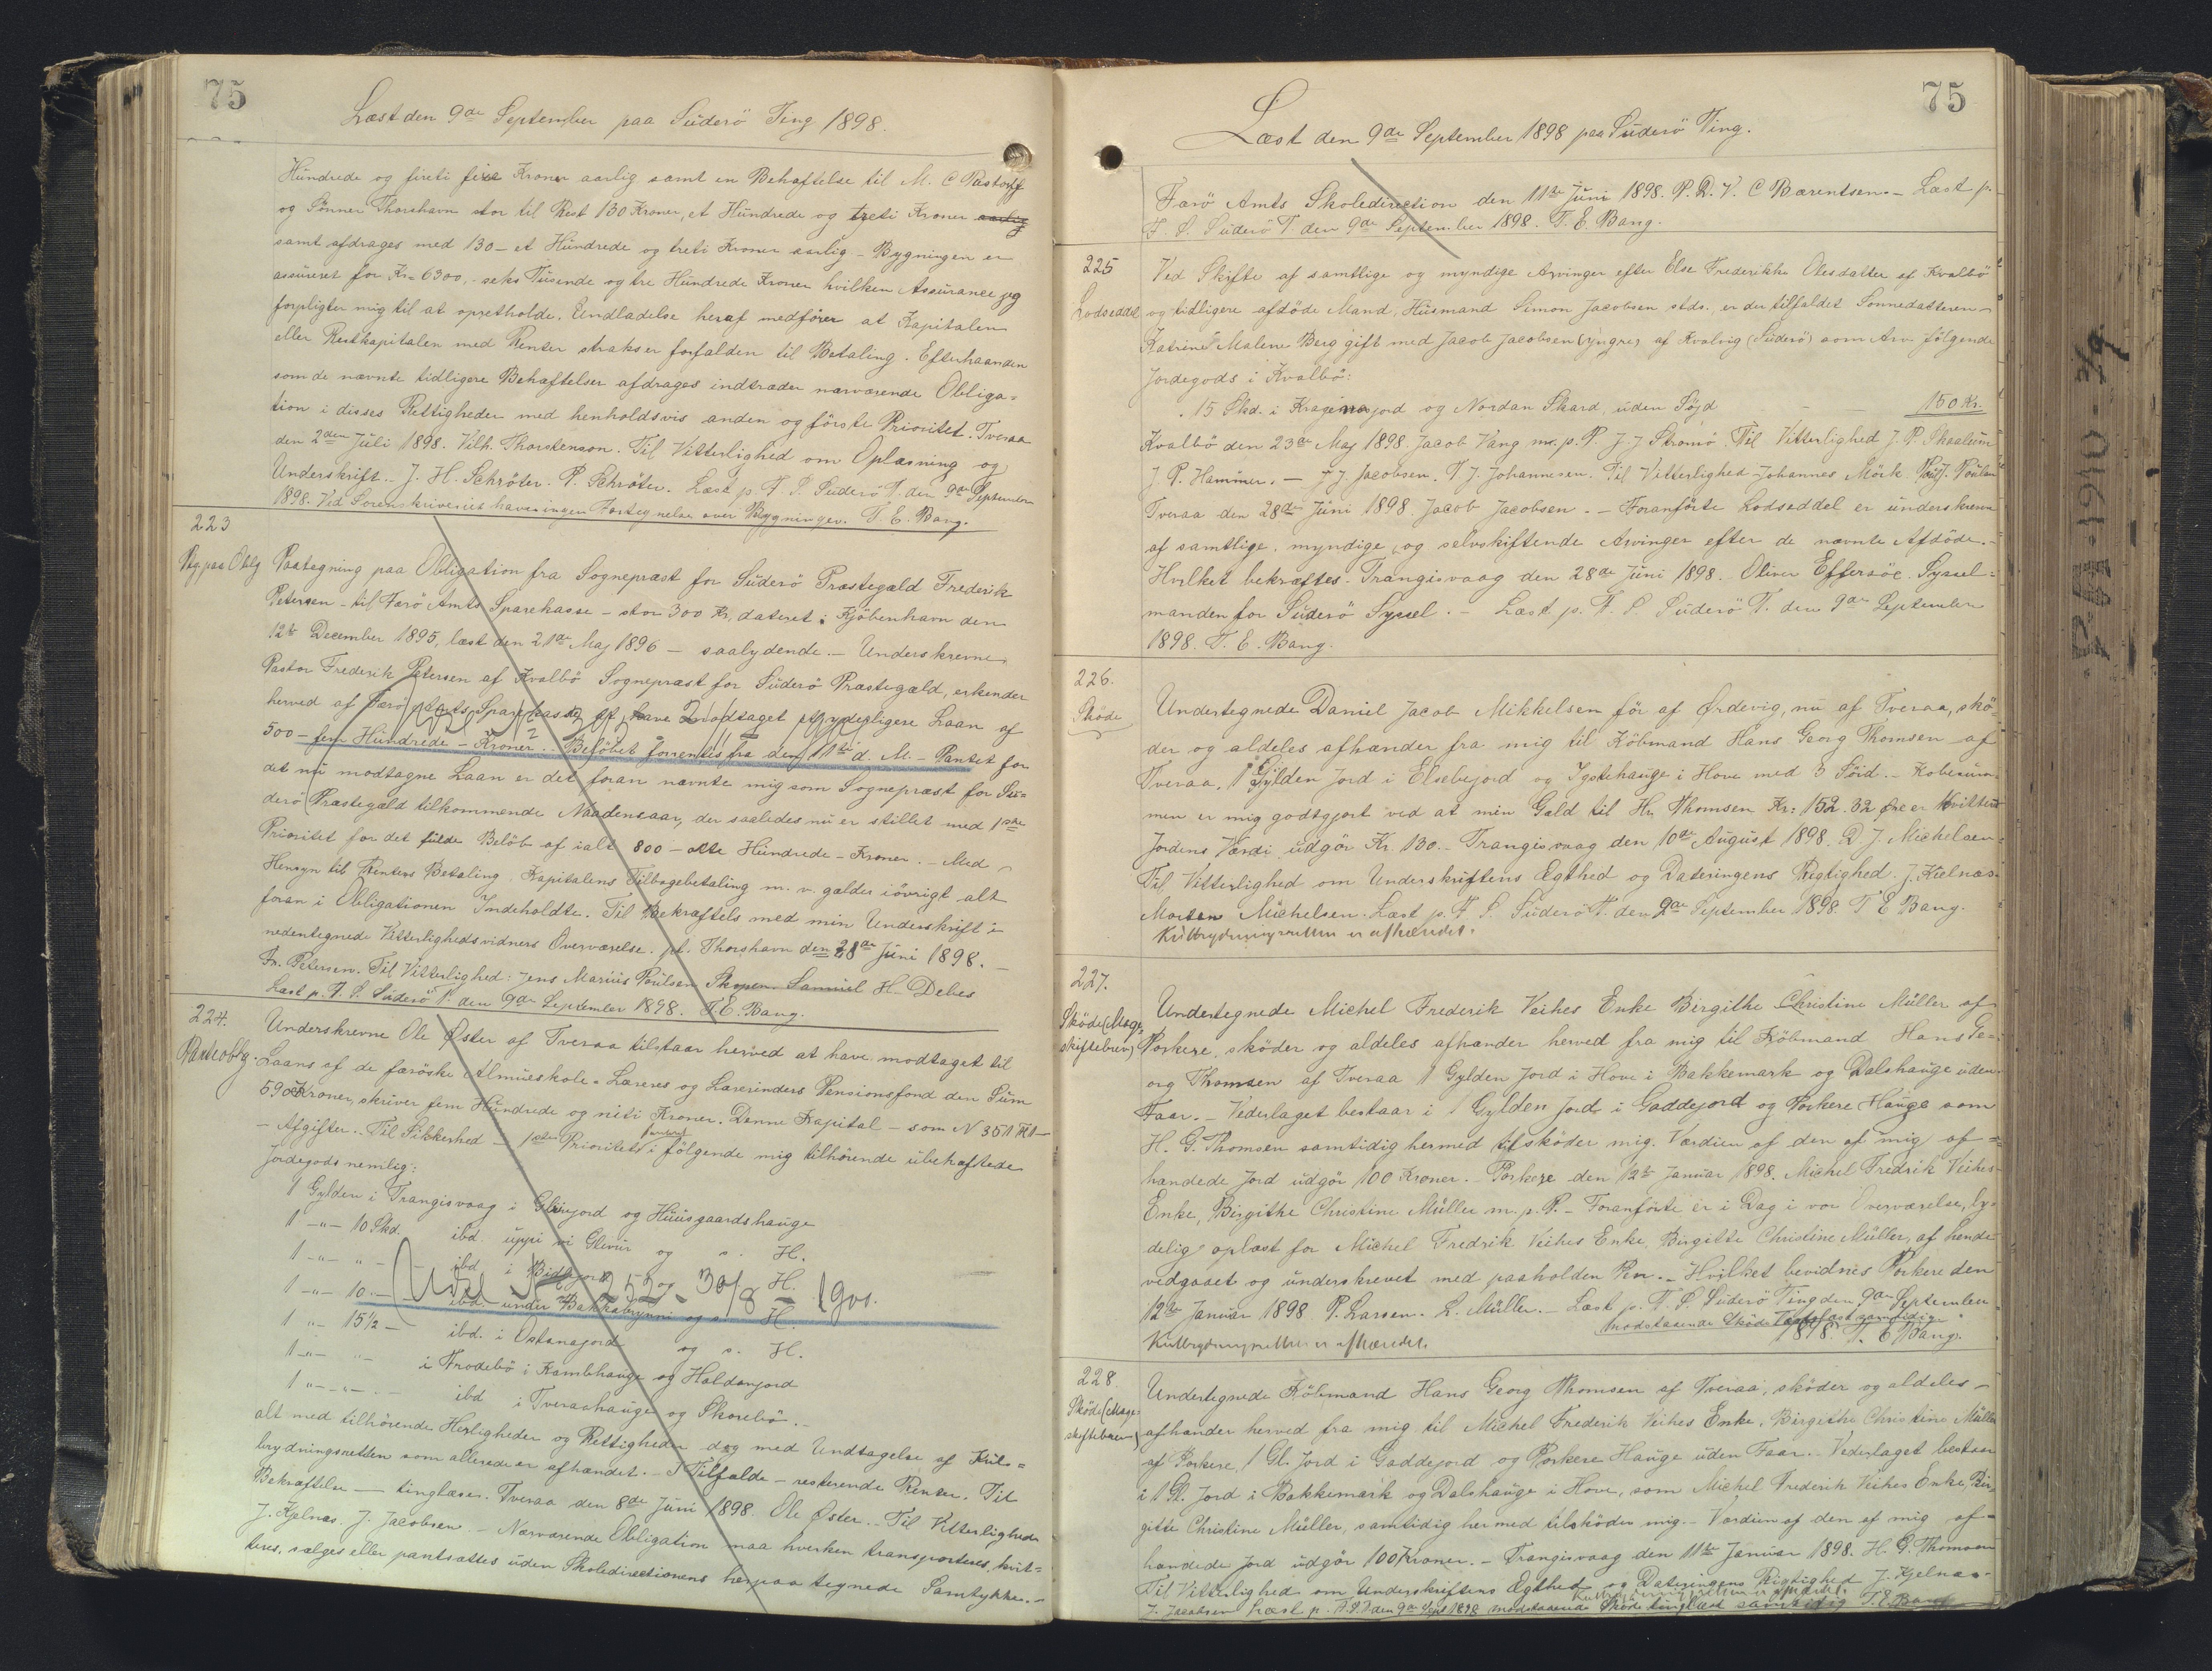 75
Læst den 9de September paa Suderö Ting 1898.
Hundrede og fireti fire Kroner aarlig samt en Behæftelse til M. C Restorff
og Sønner Thorshavn stor til Rest 130 Kroner, et Hundrede og treti Kroner aarlig
samt afdrages med 130 - et Hundrede og treti Kroner aarlig - Bygningen er
assureret for Kr= 6300,- seks Tusende og tre Hundrede Kroner hvilken Assurance jeg
forpligter mig til at opretholde. Undladelse heraf medfører at Kapitalen
eller Restkapitalen med Renter strakser forfalden til Betaling. Efterhaanden
som de nævnte tidligere Behæftelser afdrages indtræder nærværende Obliga=
tion i disses Rettigheder med henholdsvis anden og første Prioritet. Tveraa
den 2den Juli 1898. Vilh. Thorstenson. Til Vitterlighed om Oplæsning og
Underskrift. J. H. Schröter. P. Schröter. Læst p. F. S. Suderö T. den 9de September
1898. Ved Sorenskriveriet haves ingen Fortegnelse over Bygninger. T. E. Bang.
223
Ptg paa Oblg
Paategning paa Obligation fra Sognepræst for Suderö Præstegæld Frederik
Petersen - til Færö Amts Sparekasse - stor 300 Kr, dateret Kjöbenhavn den
12te December 1895, læst den 21de Maj 1896 - saalydende. - Underskrevne
Pastor Frederik Petersen af Kvalbö Sognepræst for Suderö Præstegæld, erkender
herved af Færö Amts Sparekasse at have modtaget et yderligere Laan af
500 - fem Hundrede - Kroner. - Beløbet forrentes fra den 11te d. M. - Pantet for
det nu modtagne Laan er det foran nævnte mig som Sognepræst for Su=
derö Præstegæld tilkommende Naadensaar, der saaledes nu er stillet med 1ste
Prioritet for det fulde Beløb af ialt 800 - otte Hundrede - Kroner. - Med
Hensyn til Renters Betaling, Kapitalens Tilbagebetaling m. v. gælder iövrigt alt
foran i Obligationen Indeholdte. Til Bekræftels med min Underskrift i
nedentegnede Vitterlighedsvidners Overværelse. pt. Thorshavn den 28de Juni 1898. -
Fr. Petersen. Til Vitterlighed: Jens Marius Poulsen Skopen. Samuel H. Debes
Læst p. F. S. Suderö T. den 9de September 1898. T. E. Bang.
224.
Panteoblg.
Underskrevne Ole Øster af Tveraa tilstaar herved at have modtaget til
Laans af de færöske Almueskole-Læreres og Lærerinders Pensionsfond den Sum
590 Kroner, skriver fem Hundrede og niti Kroner. Denne Kapital - som N 351
- Afgifter. - Til Sikkerhed - 1ste Prioritets i følgende mig tilhørende ubehæftede
Jordegods nemlig:
1 Gylden i Trangisvaag i Glivrjord og Huusgaardshauge
1 -"- 10 Skd. ibd. uppi vi Glivur og s. H.
1 -"- "- ibd. i og H.
1 -"- 10 - ibd. under Bakkabrynni og s. H.
Udsl 252 30/8 1901.
1 "- 15 1/2 - ibd. i Østanajord og s. H.
1 -"- "- i Frodebö i Kambhauge og Haldanjord
1 "- -"- ibd i Tveraahauge og Skorebö. -
alt med tilhörende Herligheder og Rettigheder dog med Undtagelse af Kul=
brydningsretten som allerede er afhændet. - I Tilfælde - resterende Renter. Til
Bekræftelse - tinglæses. Tveraa den 8de Juni 1898. Ole Øster. - Til Vitterlighed
J. Kjelnæs. J. Jacobsen. - Nærværende Obligation maa hverken transporteres, kvit=
teres, sælges eller pantsættes uden Skoledirectionens herpaa tegnede Samtykke. -
75
Læst den 9de September 1898 paa Suderö Ting.
Færö Amts Skoledirection den 11te Juni 1898. P. D. V. C Bærentsen. - Læst p.
F. S. Suderö T. den 9de September 1898. T. E. Bang.
225
Lodseddel
Ved Skifte af samtlige og myndige Arvinger efter Else Frederikke Olesdatter af Kvalbö
og tidligere afdöde Mand, Husmand Simon Jacobsen stds., er der tilfaldet Sönnedatteren
Katrine Malene Berg gift med Jacob Jacobsen (yngre) af Kvalvig (Suderö) som Arv følgende
Jordegods i Kvalbö:
15 Skd. i jord og Nordan Skard, uden Söjd - 150 Kr.
Kvalbö den 23de Maj 1898. Jacob Vang m. p. P. J. J Strömö. Til Vitterlighed J. P. Skaalum
J. P. Hammer. - J. J. Jacobsen. T. J. Johannesen. Til Vitterlighed Johannes Mörk. Poulsen
Tveraa den 28de Juni 1898. Jacob Jacobsen. - Foranførte Lodseddel er underskreven
af samtlige, myndige, og selvskiftende Arvinger efter de nævnte Afdöde. -
Hvilket bekræftes. Trangisvaag den 28de Juni 1898. Oliver Effersöe. Syssel=
manden for Suderö Syssel. - Læst p. F. S Suderö T. den 9de September
1898. T. E. Bang.
226.
Sköde
Undertegnede Daniel Jacob Mikkelsen för af Ørdevig, nu af Tveraa, skö=
der og aldeles afhænder fra mig til Köbmand Hans Georg Thomsen af
Tveraa, 1 Gylden Jord i Elsebejord og Ygstehauge i Hove med 3 Söid. - Kobesum=
men er mig godtgjort ved at min Gæld til Hr. Thomsen Kr: 152. 32 Øre er Kvitteret
Jordens Værdi udgör Kr. 130. - Trangisvaag den 10de August 1898. D J. Michelsen
Til Vitterlighed om Underskriftens Ægthed og Dateringens Rigtighed. J. Kjelnæs
Morten Michelsen. Læst p. F. S. Suderö T. den 9de September 1898. T E Bang.
Kulbrydningsretten er afhændet.
227.
Sköde (Mage=
skiftebrev)
Undertegnede Michel Frederik Veihes Enke Birgithe Christine Müller af
Porkere, sköder og aldeles afhænder herved fra mig til Köbmand Hans Ge=
org Thomsen af Tveraa 1 Gylden Jord i Hove i Bakkemark og Dalshauge uden
Faar. - Vederlaget bestaar i 1 Gylden Jord i Gaddejord og Porkere Hauge som
H. G. Thomsen samtidig hermed tilsköder mig. Værdien af den af mig af=
hændede Jord udgör 100 Kroner. - Porkere den 12te Januar 1898. Michel Fredrik Veihes
Enke, Birgithe Christine Müller m. p. P. - Foranförte er i Dag i vor Overværelse, ly=
delig oplæst for Michel Fredrik Veihes Enke, Birgitte Christine Müller, af hende
vedgaaet og underskrevet med paaholden Pen. - Hvilket bevidnes Porkere den
12te Januar 1898 P. Larsen. L. Müller. - Læst p. F. S. Suderö Ting den 9de September
modstaaende Sköde samtidig 1898. T. E Bang.
Kulbrydningsretten er afhændet.
228.
Sköde (Mage=
skiftebrev)
Undertegnede Köbmand Hans Georg Thomsen af Tveraa, sköder og aldeles
afhænder herved fra mig til Michel Frederik Veihes Enke, Birgithe Christine Müller
af Porkere, 1 Gl. Jord i Gaddejord og Porkere Hauge uden Faar. - Vederlaget bestaar
i 1 Gl. Jord i Bakkemark og Dalshauge i Hove, som Michel Frederik Veihes Enke, Bir=
gitte Christine Müller, samtidig hermed tilsköder mig. - Værdien af den af mig af=
hændede Jord udgör 100 Kroner. - Trangisvaag den 11te Januar 1898. H. G. Thomsen
Til Vitterlighed om Underskriftens Ægthed og Dateringens Rigtighed J. Kjelnæs.
Kulbrydningsretten er afhændet.
J. Jacobsen Læst p. F. S. T den 9de Sept 1898 modstaaende Sköde tinglæst samtidig T. E Bang